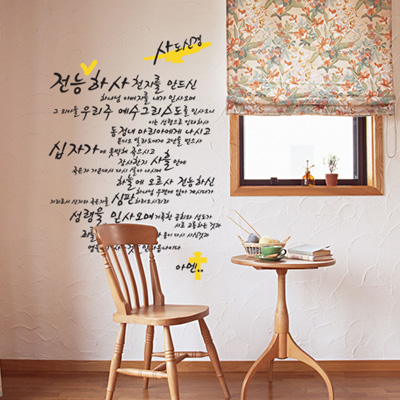 사도신경
전능하사 천지를 만드신
하나님 아버지를 내가 믿사오며
그 외아들 우리주 예수그리스도를 믿사오니
이는 성령으로 잉태하사
동정녀 마리아에게 나시고
본디오 빌라도에게 고난을 받으사
십자가에 못박혀 죽으시고
장사한지 사흘만에
죽은자 가운데서 다시 살아 나시며
하늘에 오르사 전능하신
하나님 우편에 앉아 계시다가
저리로서 산자와 죽은자를 심판하러오시리라
성령을 믿사오며 거룩한 공회와 성도가
서로 교통하는 것과
죄를 몸이 다시 사는것과
아멘..